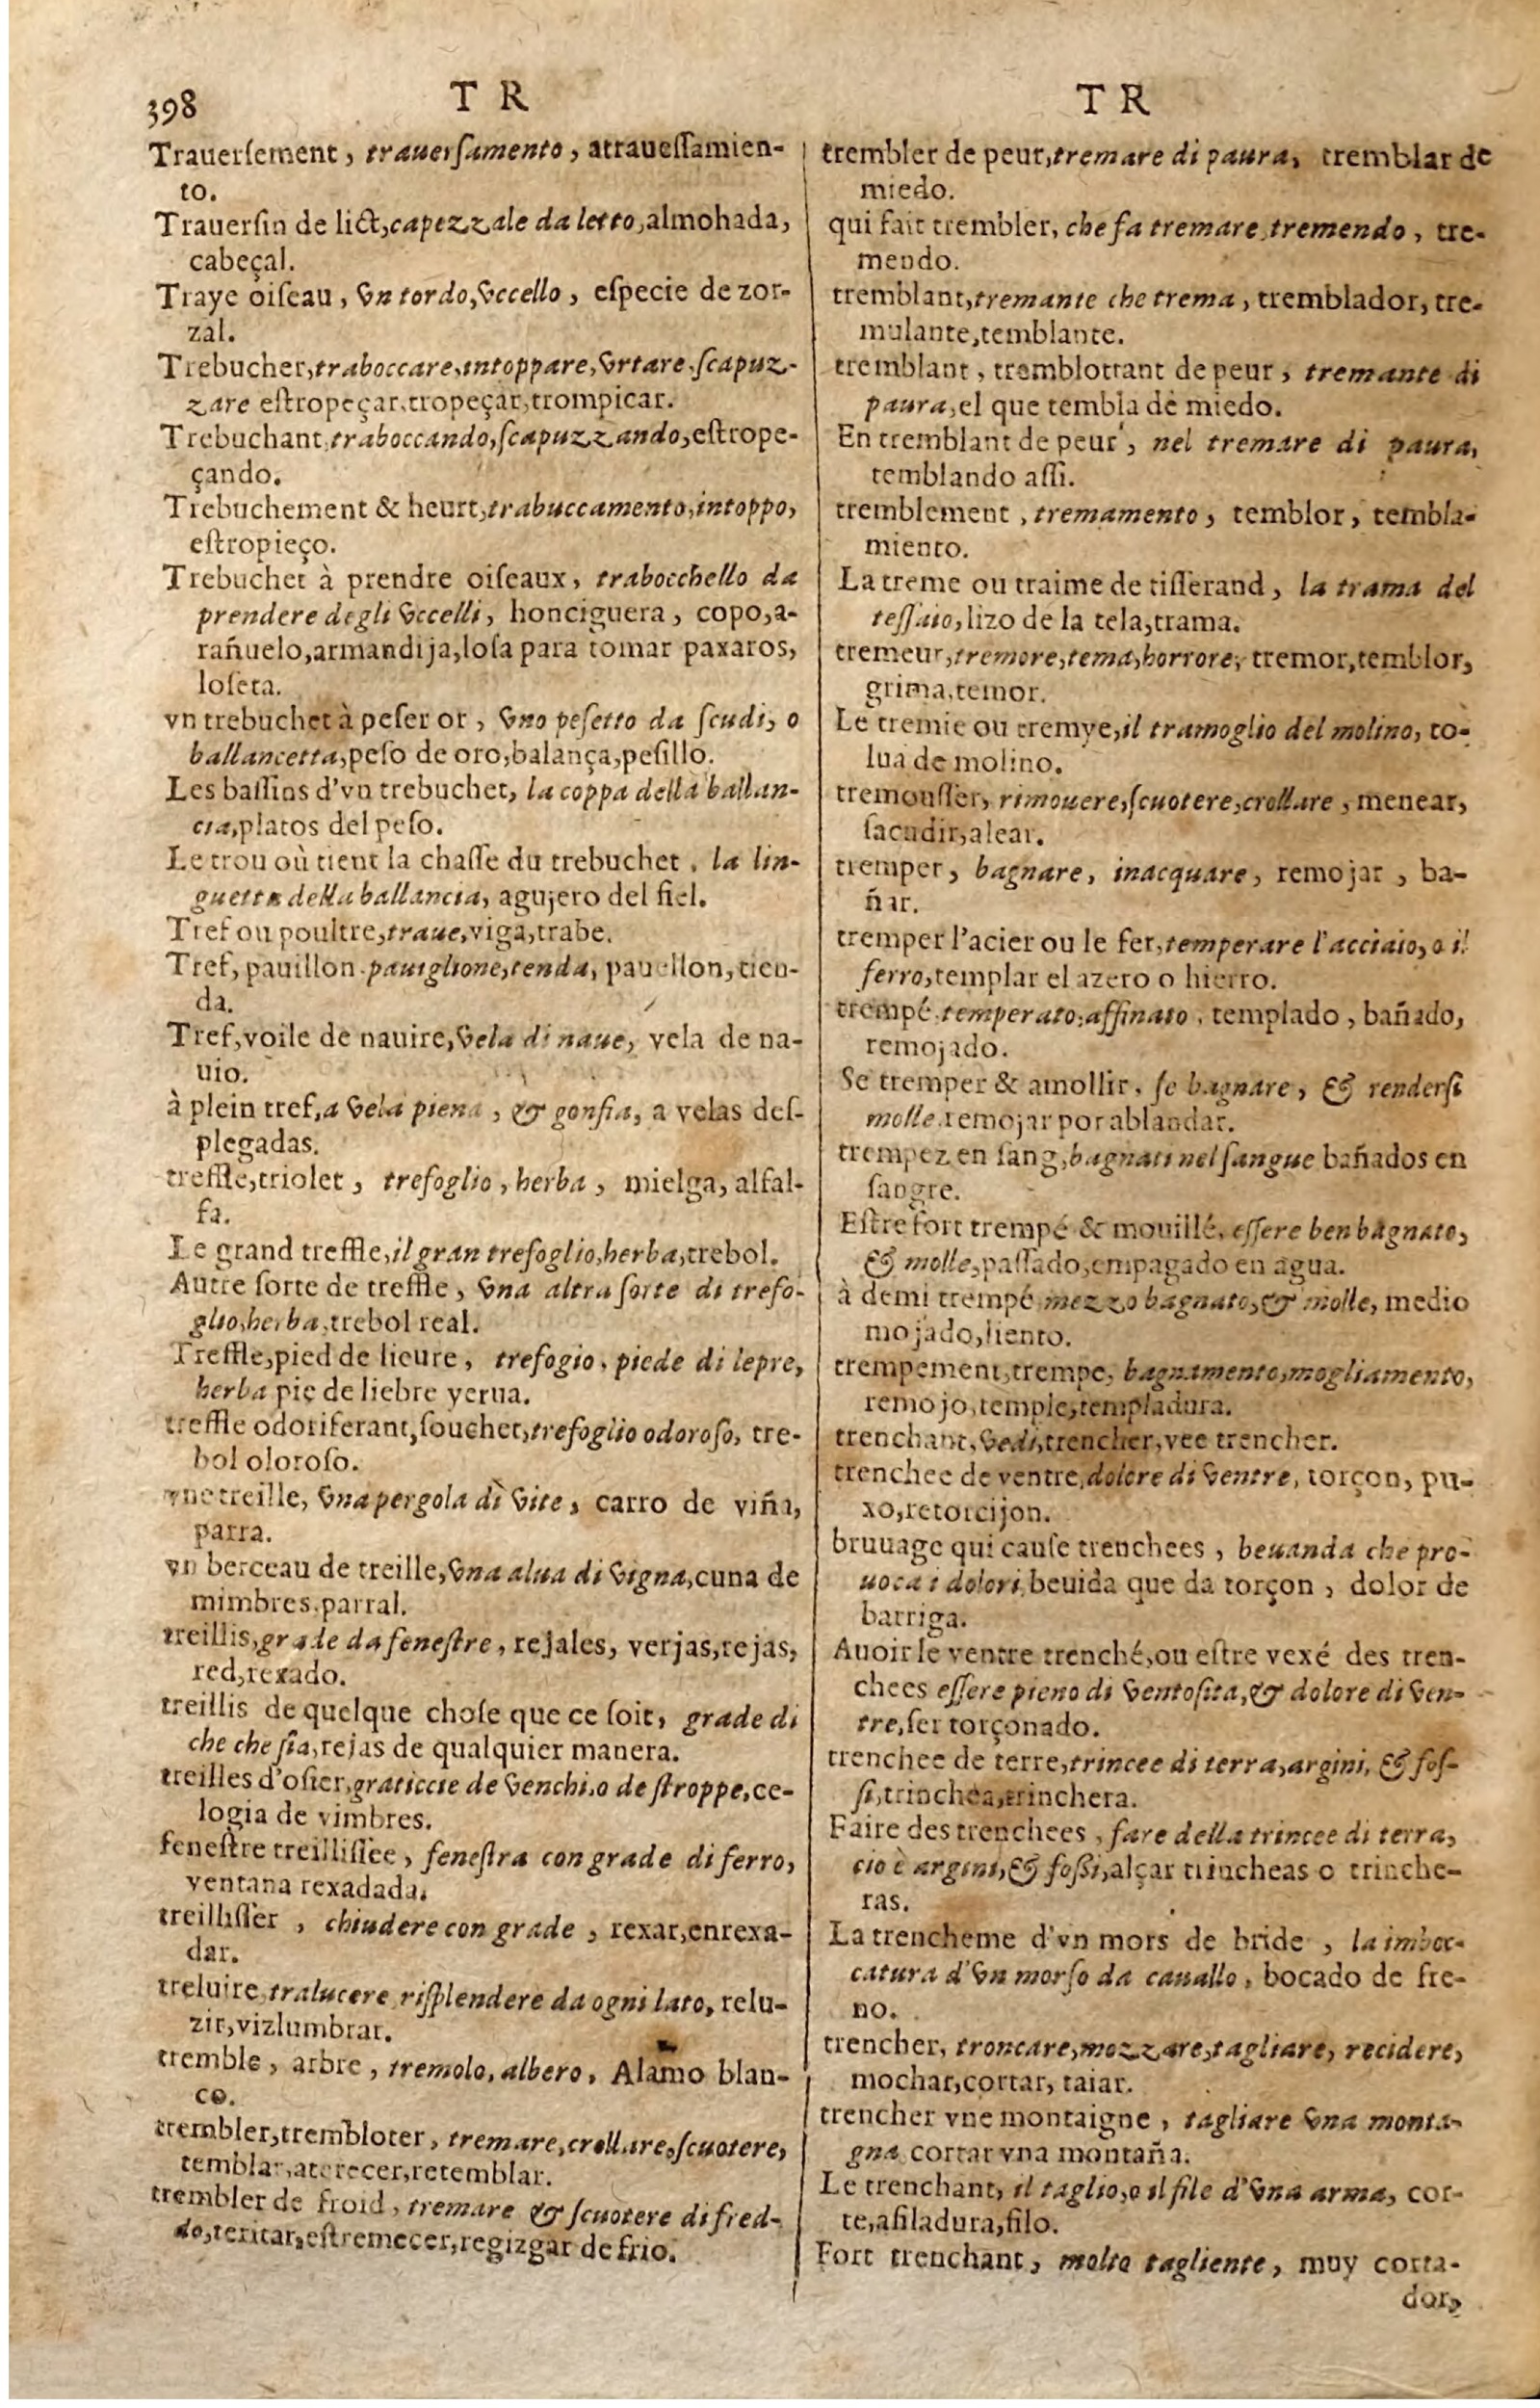 398
T R
Trauerſement, trauerſamento, atraueſſamien-
to.
Trauerſin de lict, capezzale da letto, almohada,
cabeçal.
Traye oiſeau, vn tordo, vccello, eſpecie de zor-
zal.
Trebucher, traboccare, intoppare, vrtare, ſcapuz-
zare eſtropeçar, tropeçar, trompicar.
Trebuchant, traboccando, ſcapuzzando, eſtrope-
çando.
Trebuchement & heurt, trabuccamento, intoppo,
eſtropieço.
Trebuchet à prendre oiſeaux, trabocchello da
prendere degli vccelli, honciguera, copo, a-
rañuelo, armandija, loſa para tomar paxaros,
loſeta.
vn trebuchet à peſer or, vno peſetto da ſcudi, o
ballancetta, peſo de oro, balança, peſillo.
Les baſſins d'vn trebuchet, la coppa della ballan-
cia, platos del peſo.
Le trou où tient la chaſſe du trebuchet, la lin-
guetta della ballancia, agujero del fiel.
Tref ou poultre, traue, viga, trabe.
Tref, pauillon, pauiglione, tenda, pauellon, tien-
da.
Tref, voile de nauire, vela di naue, vela de na-
uio.
à plein tref, a vela piena, & gonfia, a velas deſ-
plegadas.
treffle, triolet, trefoglio, herba, mielga, alfal-
fa.
Le grand treffle, il gran trefoglio, herba, trebol.
Autre ſorte de treffle, vna altra ſorte di trefo-
glio, herba, trebol real.
Treffle, pied de lieure, trefogio, piede di lepre,
herba pie de liebre yerua.
treffle odoriferant, ſouchet, trefoglio odoroſo, tre-
bol oloroſo.
vne treille, vna pergola di vite, carro de viña,
parra.
vn berceau de treille, vna alua di vigna, cuna de
mimbres, parral.
treillis, grade da feneſtre, rejales, verjas, rejas,
red, rexado.
treillis de quelque choſe que ce ſoit, grade di
che che ſia, rejas de qualquier manera.
treilles d'oſier, graticcie de venchi, o de ſtroppe, ce-
logia de vimbres.
feneſtre treilliſſée, feneſtra con grade di ferro,
ventana rexadada.
treilliſſer, chiudere con grade, rexar, enrexa-
dar.
treluire, tralucere, riſplendere da ogni lato, relu-
zir, vizlumbrar.
tremble, arbre, tremolo, albero, Alamo blan-
co.
trembler, trembloter, tremare, crollare, ſcuotere,
temblar, aterecer, retemblar.
trembler de froid, tremare & ſcuotere di fred-
do, teritar, eſtremecer, regizgar de frio.
T R
trembler de peur, tremare di paura, tremblar de
miedo.
qui fait trembler, che fa tremare, tremendo, tre-
mendo.
tremblant, tremante che trema, tremblador, tre-
mulante, temblante.
tremblant, tramblottant de peur, tremante di
paura, el que tembla de miedo.
En tremblant de peur, nel tremare di paura,
temblando aſſi.
tremblement, tremamento, temblor, tembla-
miento.
La treme ou traime de tiſſerand, la trama del
teſſaio, lizo de la tela, trama.
tremeur, tremore, tema, horrore, tremor, temblor,
grima, temor.
Le tremie ou tremye, il tramoglio del molino, to-
lua de molino.
tremouſſer, rimouere, ſcuotere, crollare, menear,
ſacudir, alear.
tremper, bagnare, inacquare, remojar, ba-
ñar.
tremper l'acier ou le fer, temperare l'acciaio, o il
ferro, templar el azero o hierro.
trempé, temperato, affinato, templado, bañado,
remojado.
Se tremper & amollir, ſe bagnare, & renderſi
molle, remojar por ablandar.
trempez en ſang, bagnati nel ſangue bañados en
ſangre.
Eſtre fort trempé & mouillé, eſſere ben bagnato,
& molle, paſſado, empagado en agua.
à demi trempé mezzo bagnato, & molle, medio
mojado, liento.
trempement, trempe, bagnamento, mogliamento,
remojo, temple, templadura.
trenchant, vedi, trencher, vee trencher.
trenchee de ventre, dolore di ventre, torçon, pu-
xo, retorcijon.
bruuage qui cauſe trenchees, beuanda che pro-
uoca i dolori, beuida que da torçon, dolor de
barriga.
Auoir le ventre trenché, ou eſtre vexé des tren-
chees eſſere pieno di ventoſita, & dolore di ven-
tre, ſer torçonado.
trenchee de terre, trincee di terra, argini, & foſ-
ſi, trinchea, trinchera.
Faire des trenchees, fare della trincee di terra,
cio è argini, & foſſi, alçar trincheas o trinche-
ras.
La trencheme d'vn mors de bride, la imboc-
catura d'vn morſo da cauallo, bocado de fre-
no.
trencher, troncare, mozzare, tagliare, recidere,
mochar, cortar, taiar.
trencher vne montaigne, tagliare vna monta-
gna cortar vna montaña.
Le trenchant, il taglio, o il file d'vna arma, cor-
te, afiladura, filo.
Fort trenchant, molto tagliente, muy corta-
dor,